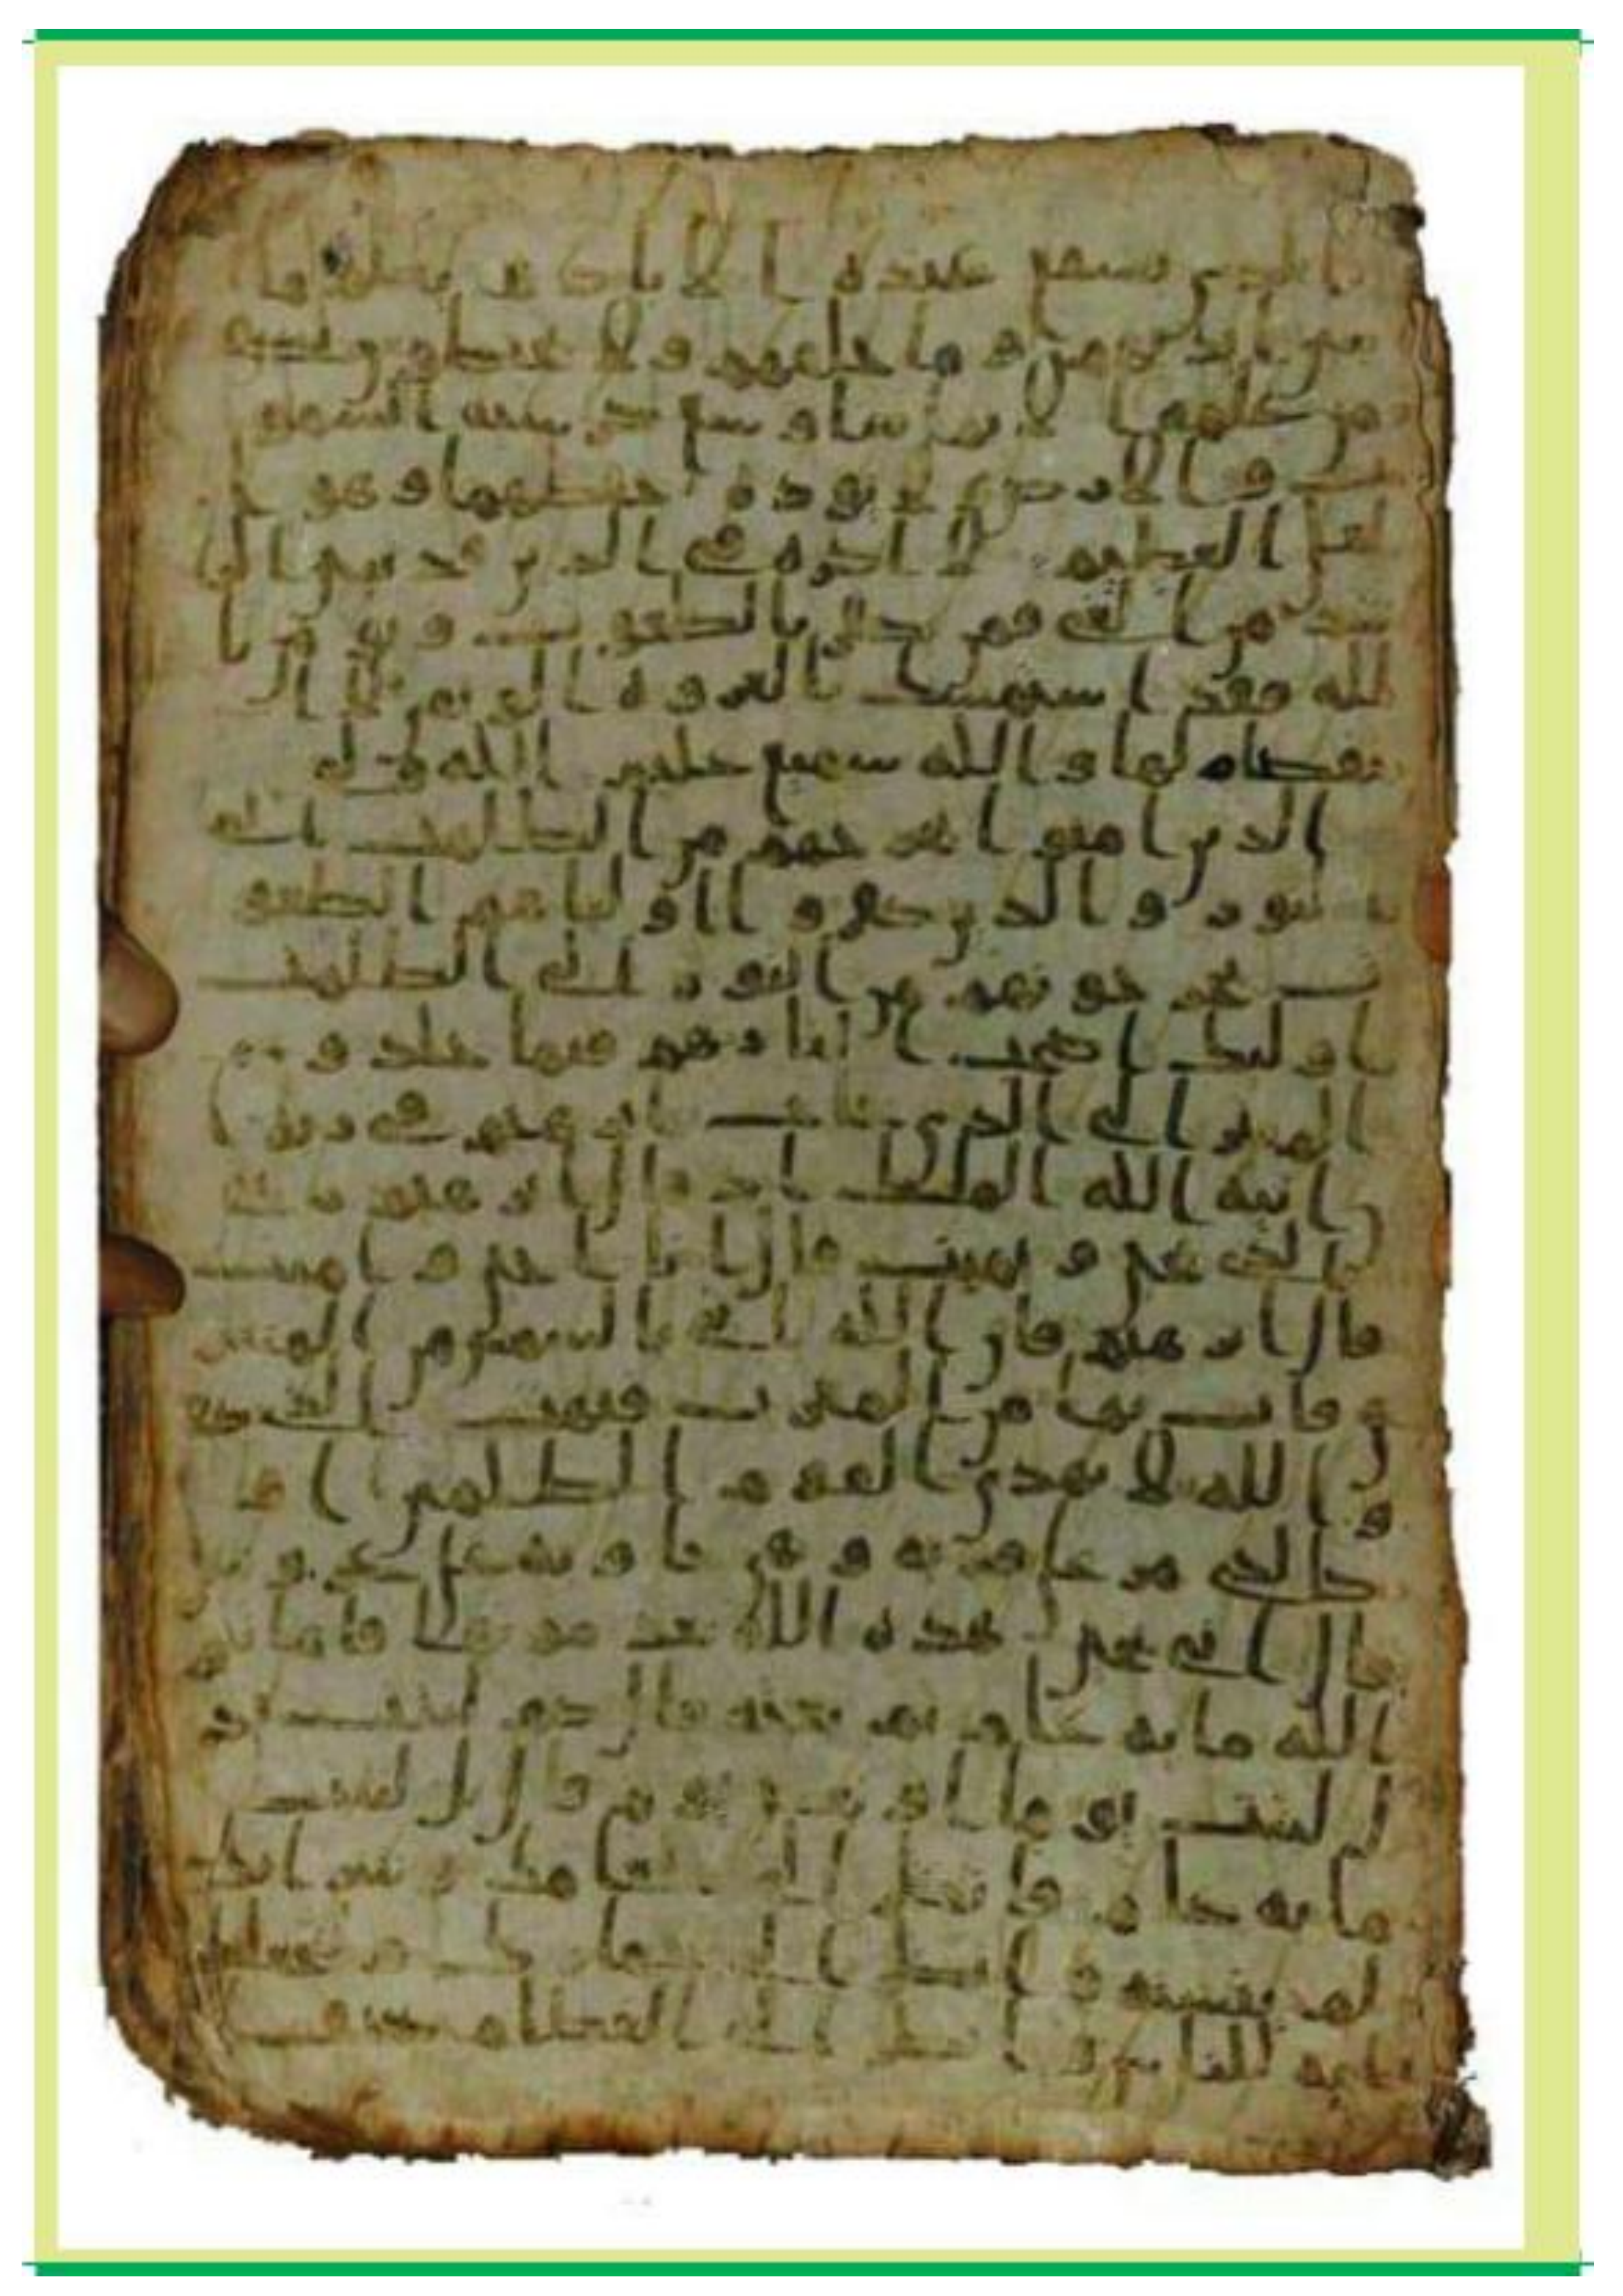 ا الذي يشفع عنده الا باذنه يعلم ما
بين ايديهم وما خلفهم ولا يحيطون بشي
من علمه الا بما شا وسع كرسيه السمو
ت والارض ولا يوده حفظهما وهو ا
لعلي العظيم لا اكره في الدين قد تبين الر
شد من الغي فمن يكفر بالطغوت ويومن با
لله فقد استمسك بالعروه الوثقى لا ا
نفصام لها والله سميع عليم الله ولي
الذين امنوا يخرجهم من الظلمت الى
النور والذين كفروا اولياهم الطغو
ت يخرجونهم من النور الى الظلمت
اوليك اصحب النار هم فيها خلدون
الم تر الى الذي حاج ابرهم في ربه ا
ن اتيه الله الملك اذ قال ابرهم ربي
الذي يحي ويميت قال انا احي واميت
قال ابرهم فان الله ياتي بالشمس من المشر
ق فات بها من المغرب فبهت الذي كفر
والله لا يهدي القوم الظلمين او
كالذي مر على قريه وهي خاويه على عروشها
قال انى يحي هذه الله بعد موتها فاماته
الله مايه عام ثم بعثه قال كم لبثت
قال لبثت يوما او بعض يوم قال بل لبثت
مايه عام فانظر الى طعامك وشرابك
لم يتسنه وانظر الى حمارك ولنجعلك
ايه للناس وانظر الى العظام كيف